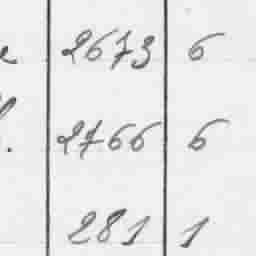 2673 6
2766 6
281 1